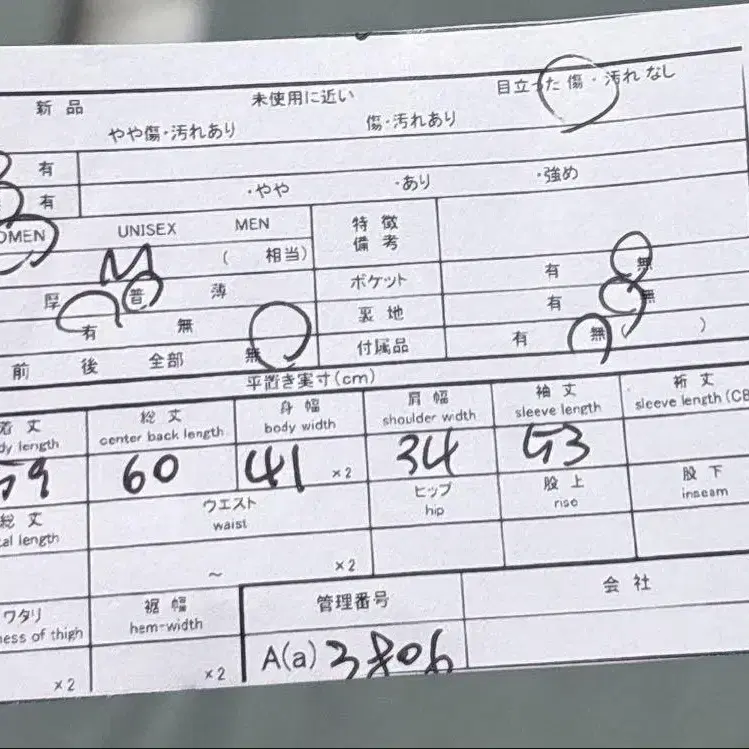 新品 未使用に近い 目立った傷・汚れなし
やや傷・汚れあり 傷・汚れあり
有
有 ・やや ・あり ・強め
OMEN UNISEX MEN 特徴
備考
M ( 相当)
厚 普 薄 ポケット 有 無
有 無 裏地 有 無
前 後 全部 無 付属品 有 無 ( )
平置き実寸(cm)
着丈 総丈 身幅 肩幅 袖丈 裄丈
dy length center back length body width shoulder wdth sleeve length sleeve length (CB
59 60 41 ×2 34 53
総丈 ウエスト ヒップ 股上 股下
al length waist hip rise inseam
~ ×2
ワタリ 裾幅 管理番号 会社
ness of thigh hem-width
×2 ×2 A(a) 3806